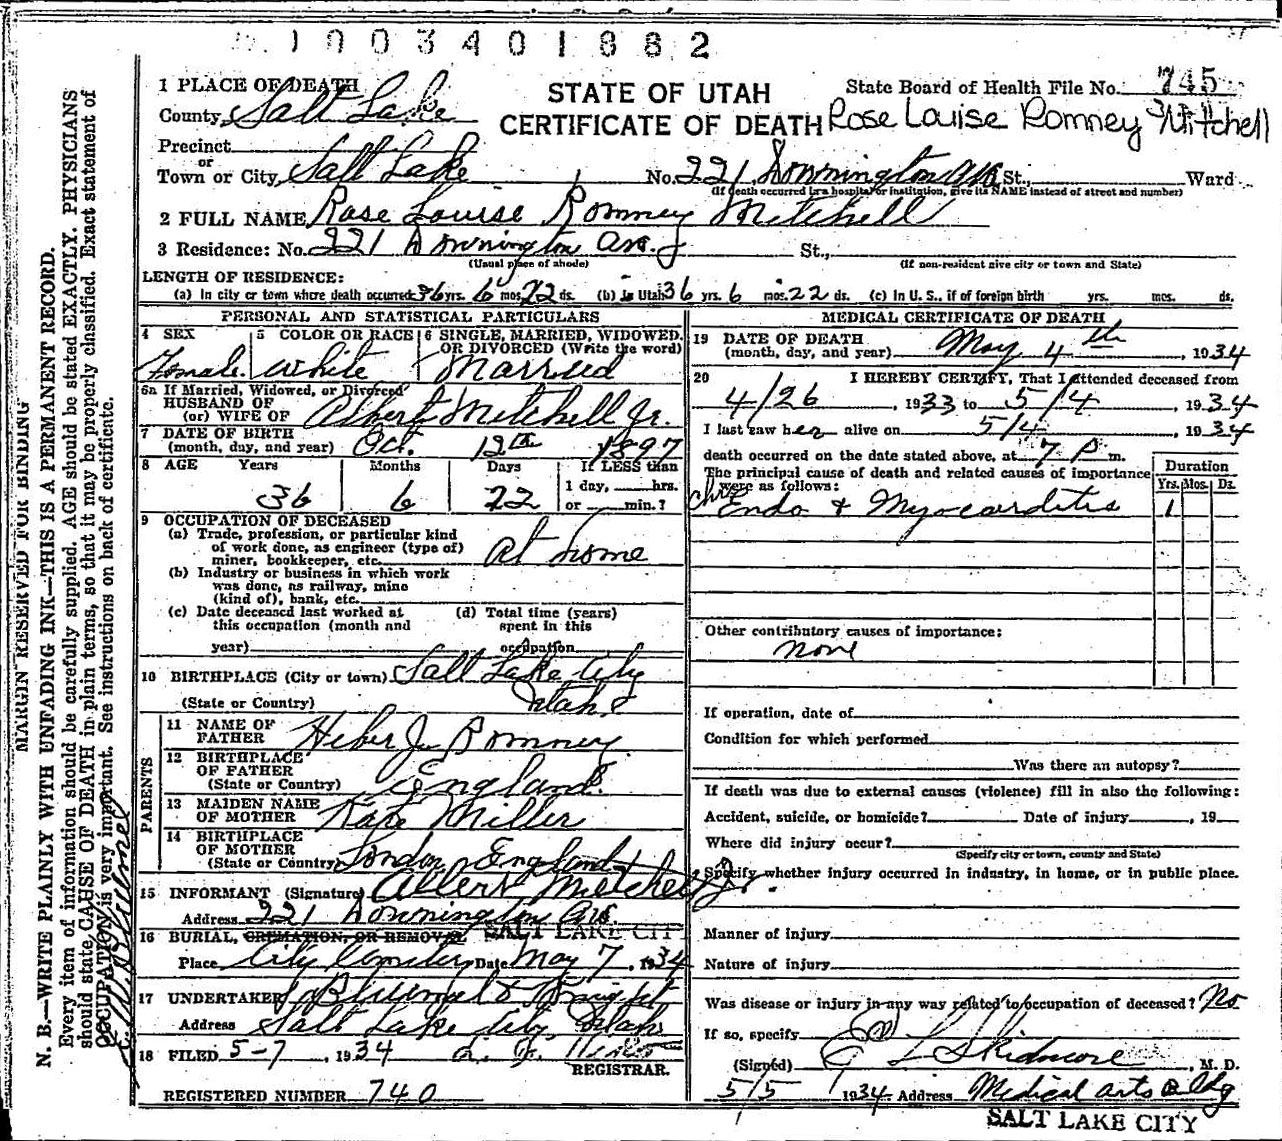 1003401882
1 PLACE OF DEATH
STATE OF UTAH
State Board of Health File No. 745
County Salt Lake
CERTIFICATE OF DEATH Rose Louise Romney Mitchell
Precinct
or
Town or City Salt Lake No. 221 Downington Ave St., Ward
(If death occurred in a hospital or institution, give its NAME instead of street and number)
2 FULL NAME Rose Louise Romney Mitchell
3 Residence: No. 221 Downington Ave. St.,
(Usual place of abode) (If non-resident give city or town and State)
LENGTH OF RESIDENCE:
(a) In city or town where death occurred 36 yrs. 6 mos. 22 ds. (b) in Utah 36 yrs. 6 mos. 22 ds. (c) In U. S., if of foreign birth yrs. mos. ds.
PERSONAL AND STATISTICAL PARTICULARS
4 SEX 5 COLOR OR RACE 6 SINGLE, MARRIED, WIDOWED, OR DIVORCED (Write the word)
Female White Married
6a If Married, Widowed, or Divorced
HUSBAND OF
(or) WIFE OF Albert Mitchell Jr.
7 DATE OF BIRTH
(month, day, and year) Oct. 12th 1897
8 AGE Years Months Days If LESS than
1 day, hrs.
36 6 22 or min.?
9 OCCUPATION OF DECEASED
(a) Trade, profession, or particular kind
of work done, as engineer (type of)
miner, bookkeeper, etc. At home
(b) Industry or business in which work
was done, as railway, mine
(kind of), bank, etc.
(c) Date deceased last worked at
this occupation (month and
year)
(d) Total time (years)
spent in this
occupation
10 BIRTHPLACE (City or town) Salt Lake City
(State or Country) Utah
PARENTS
11 NAME OF
FATHER Heber J. Romney
12 BIRTHPLACE
OF FATHER
(State or Country) England
13 MAIDEN NAME
OF MOTHER Kate Miller
14 BIRTHPLACE
OF MOTHER
(State or Country) London England
15 INFORMANT (Signature) Albert Mitchell Jr.
Address 221 Downington Ave.
SALT LAKE CITY
16 BURIAL, CREMATION, OR REMOVAL
Place City Cemetery Date May 7, 1934
17 UNDERTAKER
Address Salt Lake City, Utah
18 FILED 5-7, 1934
REGISTRAR.
REGISTERED NUMBER 740
MEDICAL CERTIFICATE OF DEATH
19 DATE OF DEATH
(month, day, and year) May 4th, 1934
20 I HEREBY CERTIFY, That I attended deceased from
4/26, 1933 to 5/4, 1934
I last saw her alive on 5/4, 1934
death occurred on the date stated above, at 7 P m.
The principal cause of death and related causes of importance
were as follows:
Duration
Yrs. Mos. Ds.
Chr Endo & Myocarditis 1
Other contributory causes of importance:
None
If operation, date of
Condition for which performed
Was there an autopsy?
If death was due to external causes (violence) fill in also the following:
Accident, suicide, or homicide? Date of injury, 19
Where did injury occur?
(Specify city or town, county and State)
Specify whether injury occurred in industry, in home, or in public place.
Manner of injury
Nature of injury
Was disease or injury in any way related to occupation of deceased? No
If so, specify
(Signed) L Skidmore, M. D.
5/5 1934 Address Medical Arts Bldg
SALT LAKE CITY
MARGIN RESERVED FOR BINDING
N. B.—WRITE PLAINLY WITH UNFADING INK—THIS IS A PERMANENT RECORD.
Every item of information should be carefully supplied. AGE should be stated EXACTLY. PHYSICIANS
should state CAUSE OF DEATH in plain terms, so that it may be properly classified. Exact statement of
OCCUPATION is very important. See instructions on back of certificate.